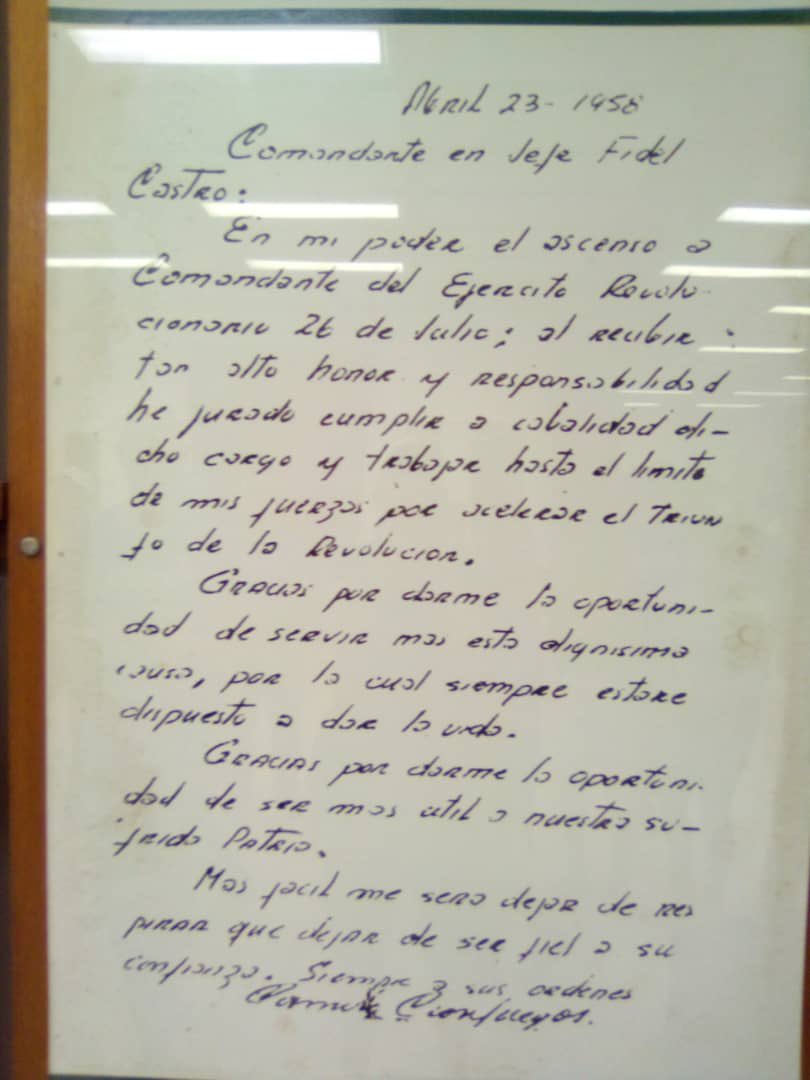 Abril 23- 1958
Comandante en Jefe Fidel
Castro:
En mi poder el ascenso a
Comandante del Ejercito Revolu-
cionario 26 de Julio; al recibir
tan alto honor y responsabilidad
he jurado cumplir a cabalidad di-
cho cargo y trabajar hasta el limite
de mis fuerzas por acelerar el Triun
fo de la Revolucion.
Gracias por darme la oportuni-
dad de servir mas esta dignisima
causa, por la cual siempre estare
dispuesto a dar la vida.
Gracias por darme la oportuni-
dad de ser mas util a nuestra su-
frida Patria.
Mas facil me sera dejar de res
pirar que dejar de ser fiel a su
confianza. Siempre a sus ordenes
Camilo Cienfuegos.